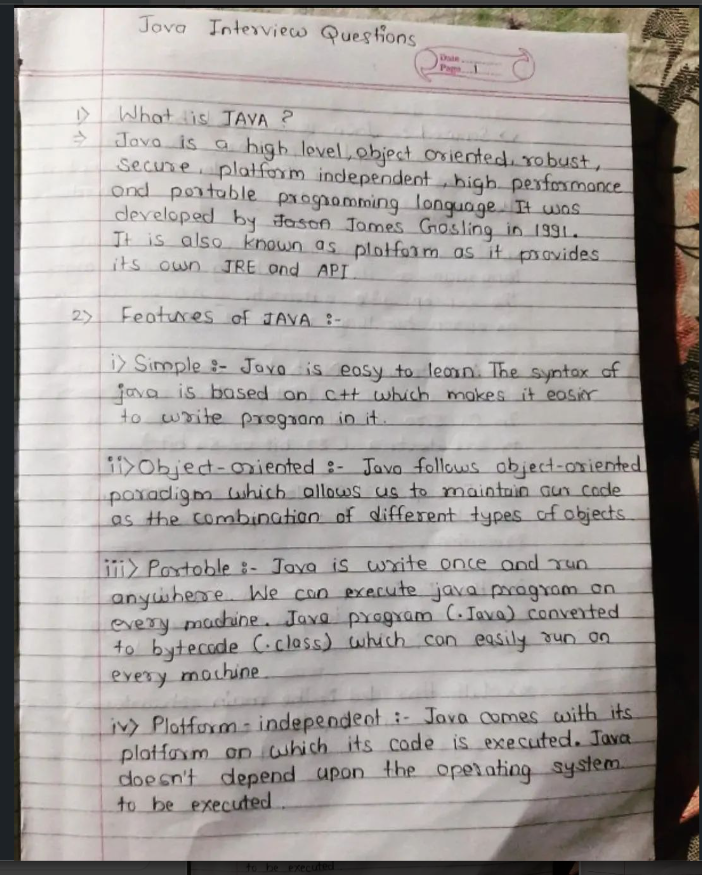 Java Interview Questions
Date
Page 1
1> What is JAVA ?
⇒ Java is a high level, object oriented, robust,
secure, platform independent, high performance
and portable programming language. It was
developed by Jason James Gosling in 1991.
It is also known as platform as it provides
its own JRE and API.
2> Features of JAVA :-
i> Simple :- Java is easy to learn. The syntax of
java is based on c++ which makes it easir
to write program in it.
ii> Object-oriented :- Java follows object-oriented
paradigm which allows us to maintain our code
as the combination of different types of objects.
iii> Portable :- Java is write once and run
anywhere. We can execute java program on
every machine. Java program (.Java) converted
to bytecode (.class) which can easily run on
every machine.
iv> Platform-independent :- Java comes with its
platform on which its code is executed. Java
doesn't depend upon the operating system
to be executed.
to be executed